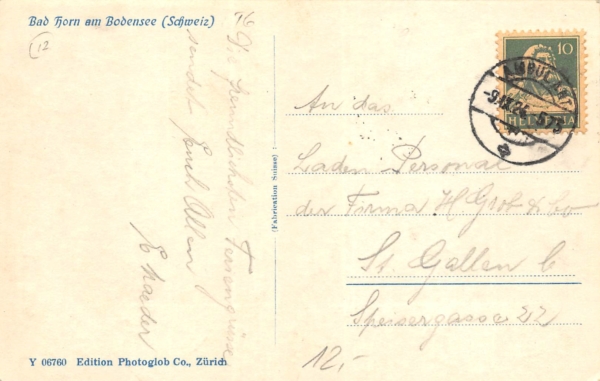 Bad Horn am Bodensee (Schweiz)
12
Die freundlichsten Feriengrüsse
sendet Euch Allen
E Kaeder
(Fabrication Suisse)
10
HELVETIA
AMBULANT
An das
Laden Personal
der Firma H Grob & Co
St. Gallen C
Speisergasse 22
12.-
Y 06760 Edition Photoglob Co., Zürich